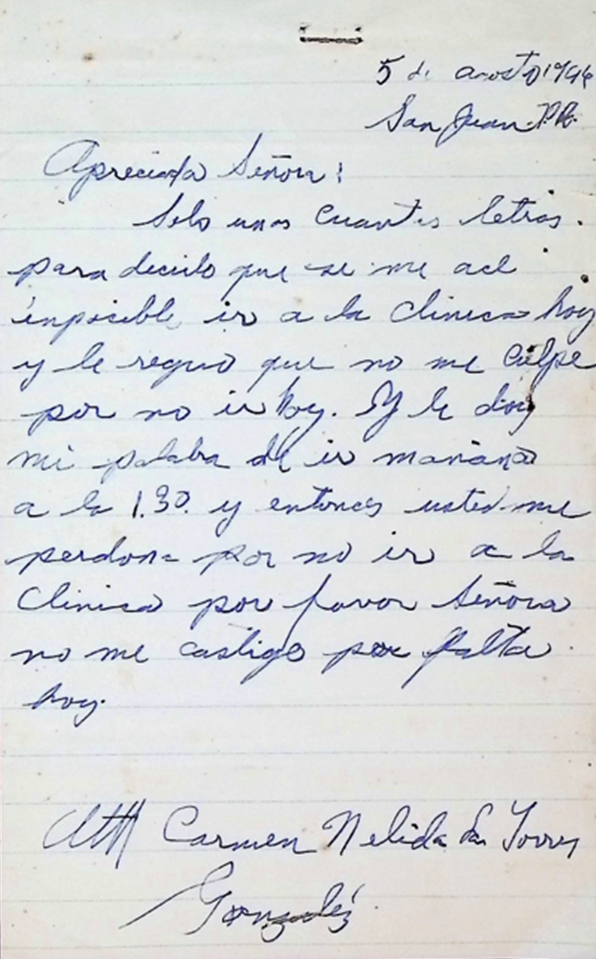 5 de agosto 1946
San Juan. P.R.
Apreciada Señora:
Solo unas cuantas letras.
para decirlo que se me ace
inposible ir a la clinica hoy
y le reguo que no me culpe
por no ir hoy. Y le doy
mi palaba de ir mañana
a la 1.30. y entonces usted me
perdona por no ir a la
Clinica por favor Señora
no me castigo por falta
hoy.
Att Carmen Nelida Torres
Gonzaléz.